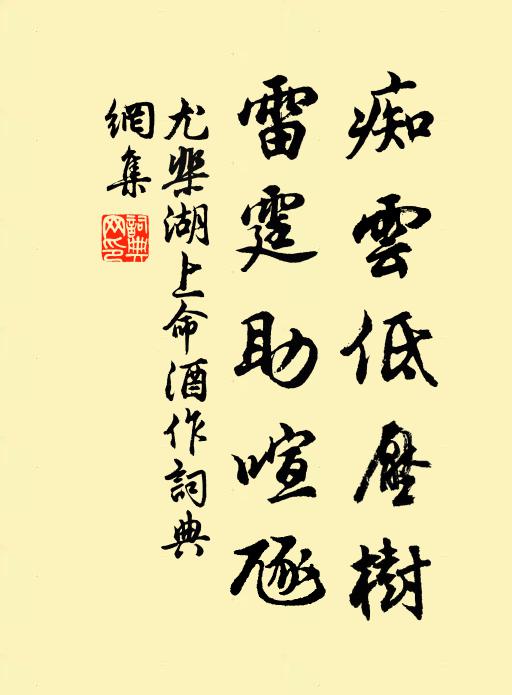 痴雲低壓樹
雷霆助喧豗
尤棐湖上命酒作詞典
網集
詞典
网印